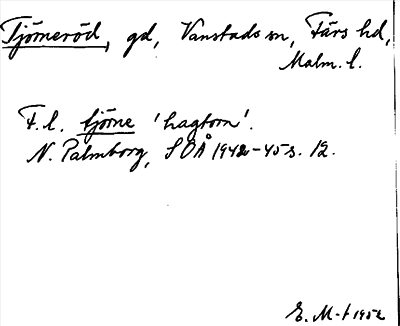 Tjörneröd, gd, Vanstads sn, Färs hd,
Malm. l.
F. l. tjörne 'hagtorn'.
N. Palmborg, SOÅ 1942-45 s. 12.
E. M-t 1952